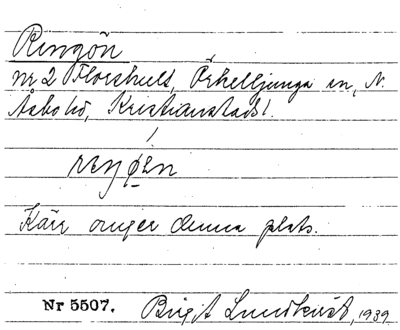 Ringön
nr 2 Florshult, Örkelljunga sn, N.
Åsbo hd, Kristianstads l.
Kärr omger denna plats.
Nr 5507. Birgit Lundkvist, 1939